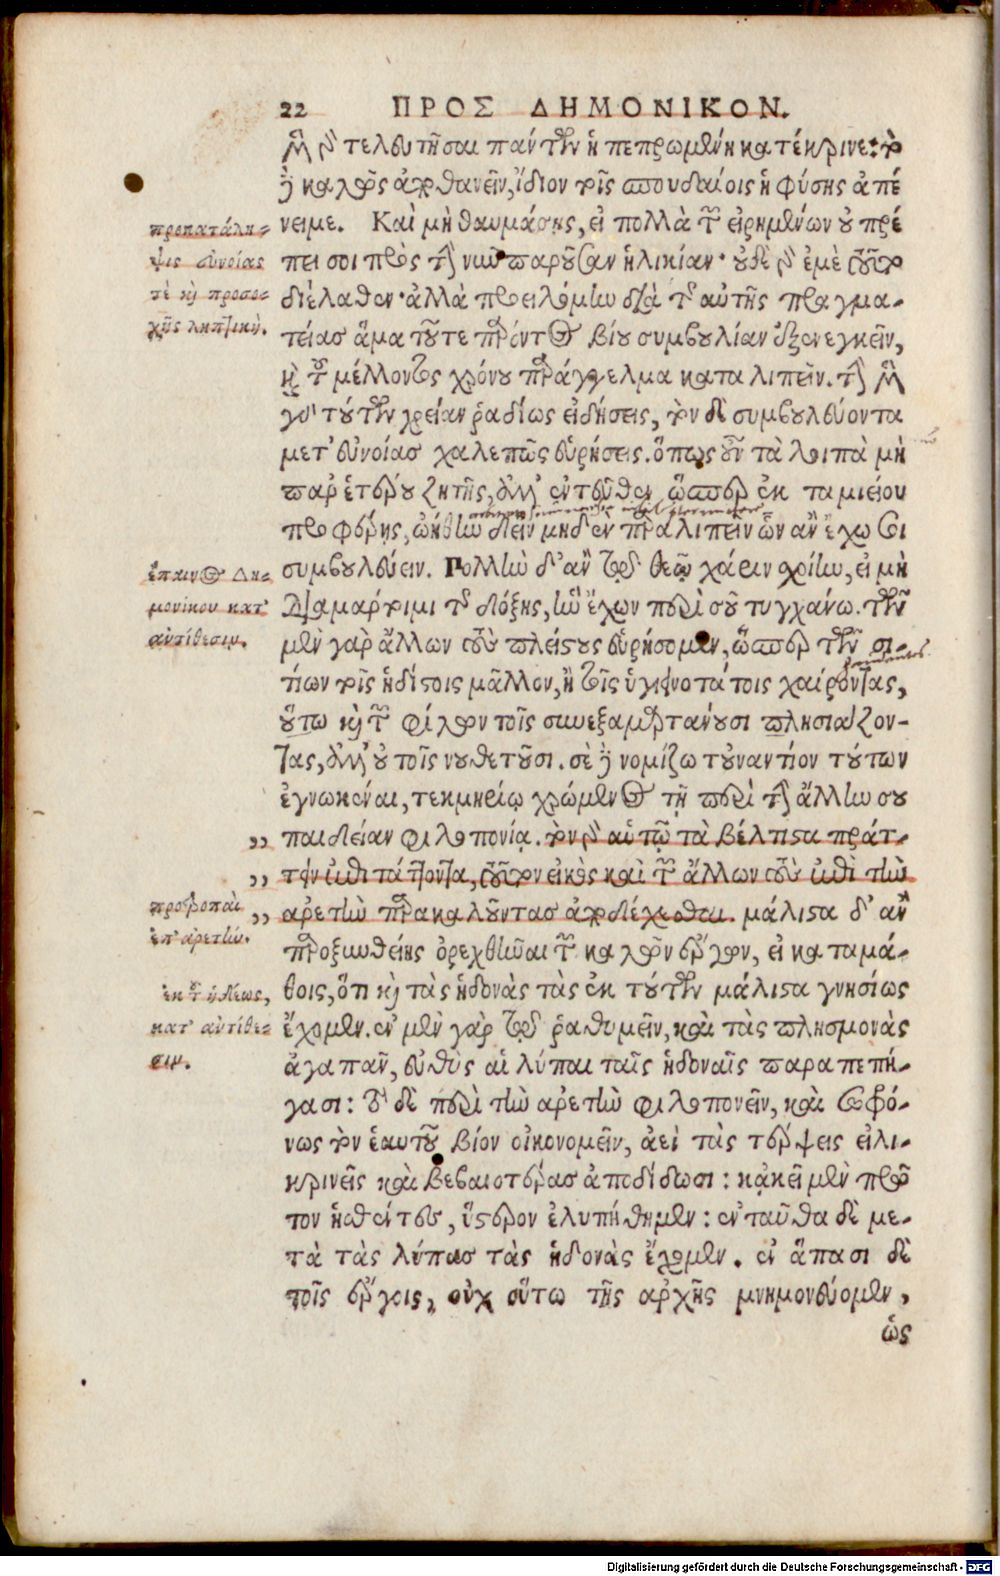 22 ΠΡΟΣ ΔΗΜΟΝΙΚΟΝ.
μὲν γὰρ τελευτῆσαι πάντων ἡ πεπρωμένη κατέκρινε: τὸ
δὲ καλῶς ἀποθανεῖν, ἴδιον τοῖς σπουδαίοις ἡ φύσις ἀπέ
νειμε. Καὶ μὴ θαυμάσῃς, εἰ πολλὰ τῶν εἰρημένων οὐ πρέ
πει σοι πρὸς τὴν νῦν παροῦσαν ἡλικίαν· οὐδὲ γὰρ ἐμὲ τοῦτο
διέλαθεν· ἀλλὰ προειλόμην διὰ τῆς αὐτῆς πραγμα-
τείας ἅμα τοῦ τε παρόντος βίου συμβουλίαν ἐξενεγκεῖν,
καὶ τοῦ μέλλοντος χρόνου παράγγελμα καταλιπεῖν. τὴν μὲν
γὰρ τούτων χρείαν ῥαδίως εἰδήσεις, τὸν δὲ συμβουλεύοντα
μετ' εὐνοίας χαλεπῶς εὑρήσεις. ὅπως οὖν τὰ λοιπὰ μὴ
παρ' ἑτέρου ζητῇς, ἀλλ' ἐντεῦθεν ὥσπερ ἐκ ταμιείου
προφέρῃς, ᾠήθην δεῖν μηδὲν παραλιπεῖν ὧν ἂν ἔχω σοι
συμβουλεύειν. Πολλὴν δ' ἂν τοῖς θεοῖς χάριν σχοίην, εἰ μὴ
διαμάρτοιμι τῆς δόξης, ἣν ἔχων περὶ σοῦ τυγχάνω. τῶν
μὲν γὰρ ἄλλων τοὺς πλείστους εὑρήσομεν, ὥσπερ τῶν σι-
τίων τοῖς ἡδίστοις μᾶλλον, ἢ τοῖς ὑγιεινοτάτοις χαίροντας,
οὕτω καὶ τῶν φίλων τοῖς συνεξαμαρτάνουσι πλησιάζον-
τας, ἀλλ' οὐ τοῖς νουθετοῦσι. σὲ δὲ νομίζω τοὐναντίον τούτων
ἐγνωκέναι, τεκμηρίῳ χρώμενος τῇ περὶ τὴν ἄλλην σου
παιδείαν φιλοπονίᾳ. τὸν γὰρ αὑτῷ τὰ βέλτιστα πράτ-
τειν ἐπιτάττοντα, τοῦτον εἰκὸς καὶ τῶν ἄλλων τοὺς ἐπὶ τὴν
ἀρετὴν παρακαλοῦντας ἀποδέχεσθαι. μάλιστα δ' ἂν
παροξυνθείης ὀρεχθῆναι τῶν καλῶν ἔργων, εἰ καταμά-
θοις, ὅτι καὶ τὰς ἡδονὰς τὰς ἐκ τούτων μάλιστα γνησίως
ἔχομεν. ἐν μὲν γὰρ τῷ ῥαθυμεῖν, καὶ τὰς πλησμονὰς
ἀγαπᾶν, εὐθὺς αἱ λύπαι ταῖς ἡδοναῖς παραπεπή-
γασι: τὸ δὲ περὶ τὴν ἀρετὴν φιλοπονεῖν, καὶ σωφρό-
νως τὸν ἑαυτοῦ βίον οἰκονομεῖν, ἀεὶ τὰς τέρψεις εἰλι-
κρινεῖς καὶ βεβαιοτέρας ἀποδίδωσι: κᾀκεῖ μὲν πρῶ
τον ἡσθέντες, ὕστερον ἐλυπήθημεν: ἐνταῦθα δὲ με-
τὰ τὰς λύπας τὰς ἡδονὰς ἔχομεν. ἐν ἅπασι δὲ
τοῖς ἔργοις, οὐχ οὕτω τῆς ἀρχῆς μνημονεύομεν,
ὡς
προκατάλη-
ψις εὐνοίας
τὲ καὶ προσο-
χῆς ληπτική.
ἔπαινος Δη-
μονίκου κατ'
ἀντίθεσιν.
προτροπαὶ
ἐπ' ἀρετήν.
ἐκ τοῦ ἡδέως,
κατ' ἀντίθε-
σιν.
Digitalisierung gefördert durch die Deutsche Forschungsgemeinschaft - DFG